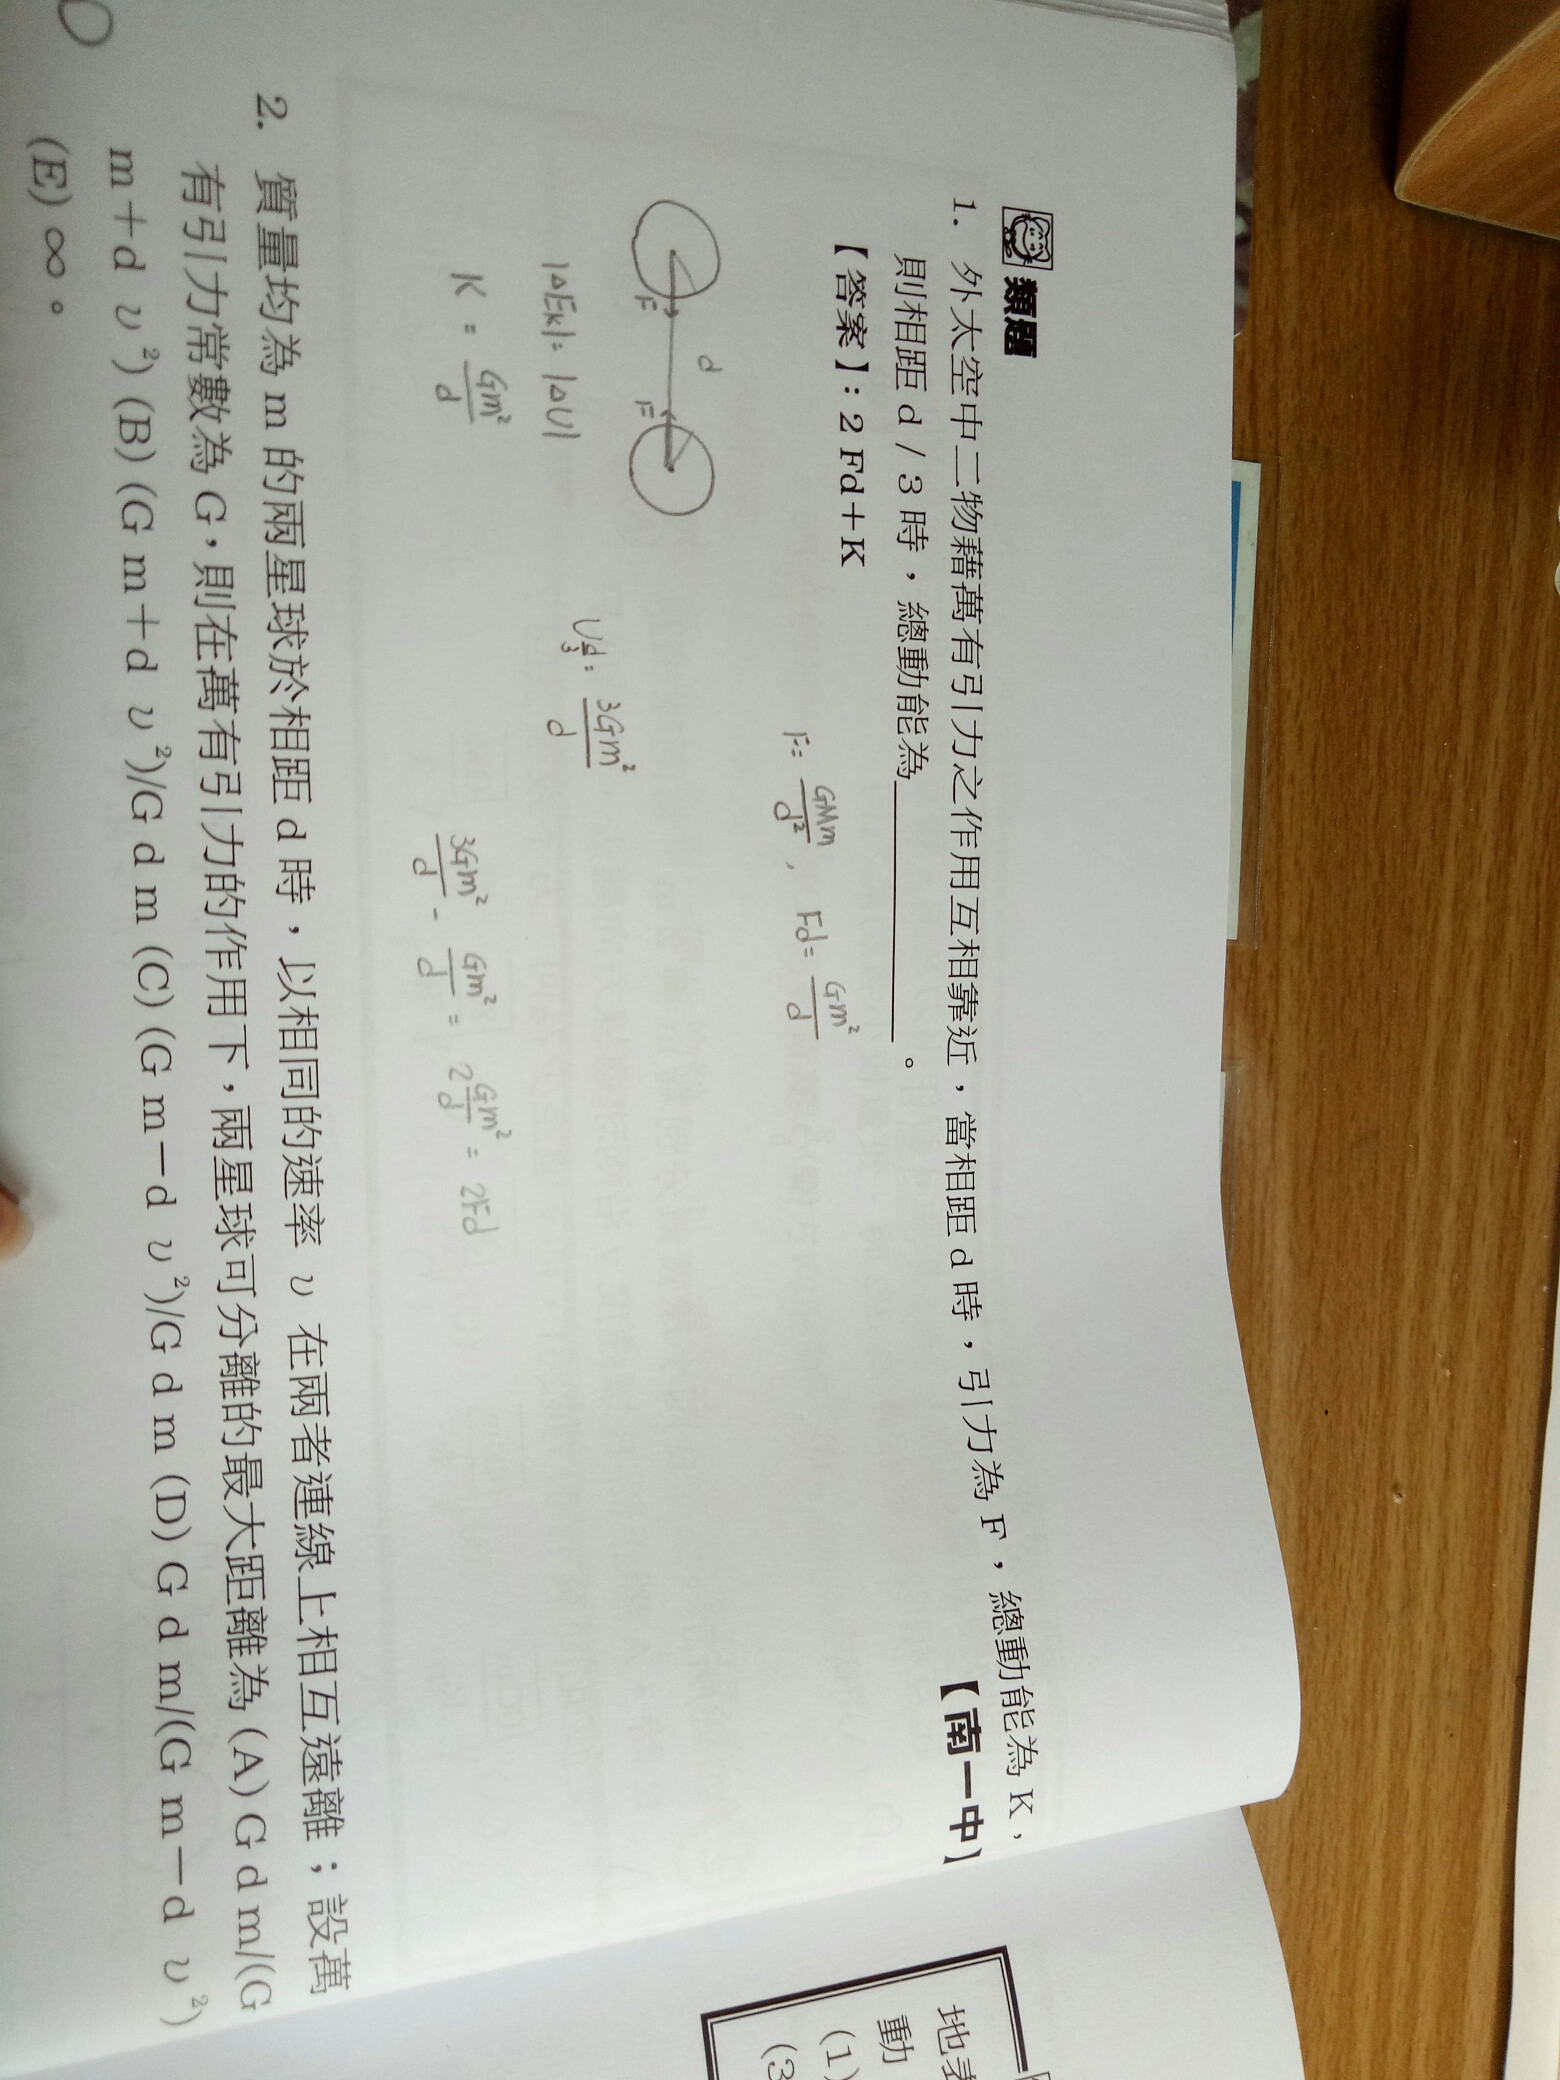 類題
1. 外太空中二物藉萬有引力之作用互相靠近，當相距 d 時，引力為 F，總動能為 K，
則相距 d / 3 時，總動能為＿＿＿＿＿。 【南一中】
【答案】：2 Fd＋K
F= GMm/d², Fd= Gm²/d
d
F F
U_{d/3} = 3Gm²/d
|ΔEk|= |ΔU|
K = Gm²/d
3Gm²/d - Gm²/d = 2Gm²/d = 2Fd
2. 質量均為 m 的兩星球於相距 d 時，以相同的速率 υ 在兩者連線上相互遠離；設萬
有引力常數為 G，則在萬有引力的作用下，兩星球可分離的最大距離為 (A) G d m/(G
m＋d υ²) (B) (G m＋d υ²)/G d m (C) (G m－d υ²)/G d m (D) G d m/(G m－d υ²)
(E) ∞。
地表
動
(1)
(3